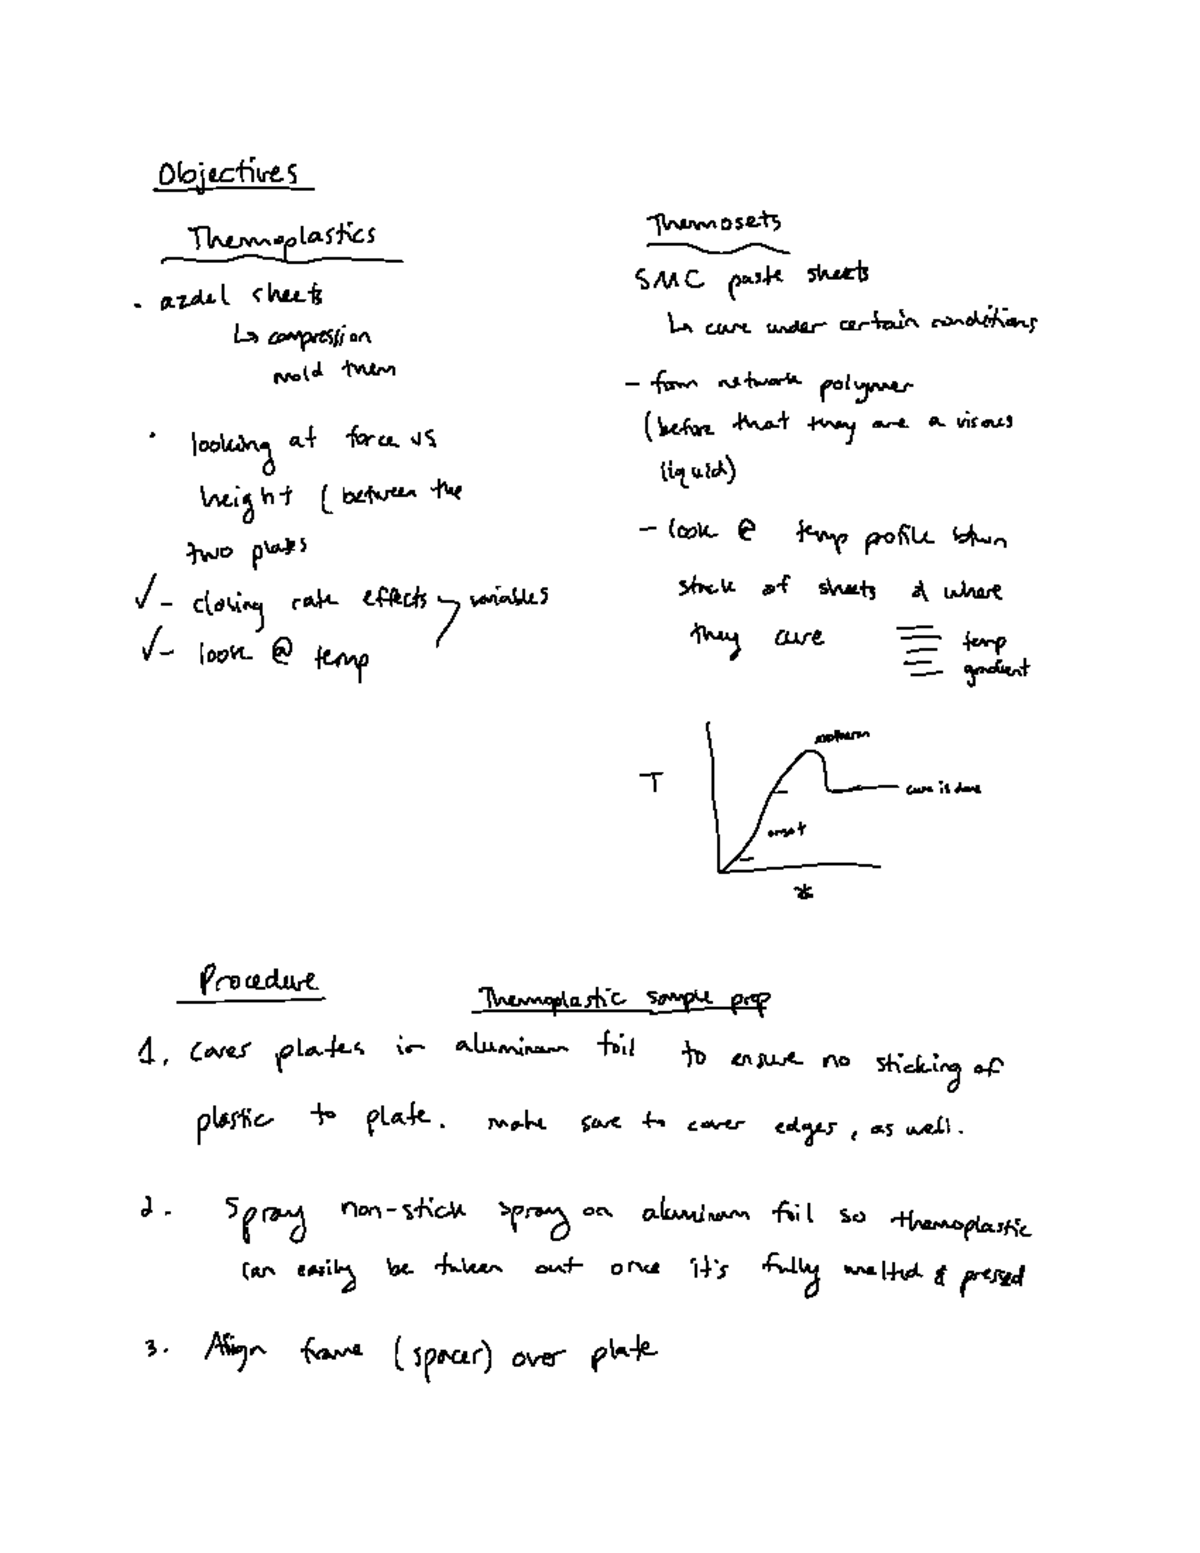 Objectives
Thermoplastics
. azdel sheets
↳ compression
mold them
· looking at force vs
height ( between the
two plates
✓ - closing rate effects variables
✓ - look @ temp
Themosets
SMC paste sheets
↳ cure under certain conditions
- form network polymer
(before that they are a viscous
liquid)
- look @ temp profile btwn
stack of sheets & where
they cure
temp
gradient
T
exotherm
cure is done
onset
Procedure
Thermoplastic sample prep
1. Cover plates in aluminum foil to ensure no sticking of
plastic to plate. make sure to cover edges, as well.
2. Spray non-stick spray on aluminum foil so themoplastic
can easily be taken out once it's fully melted & pressed
3. Align frame (spacer) over plate